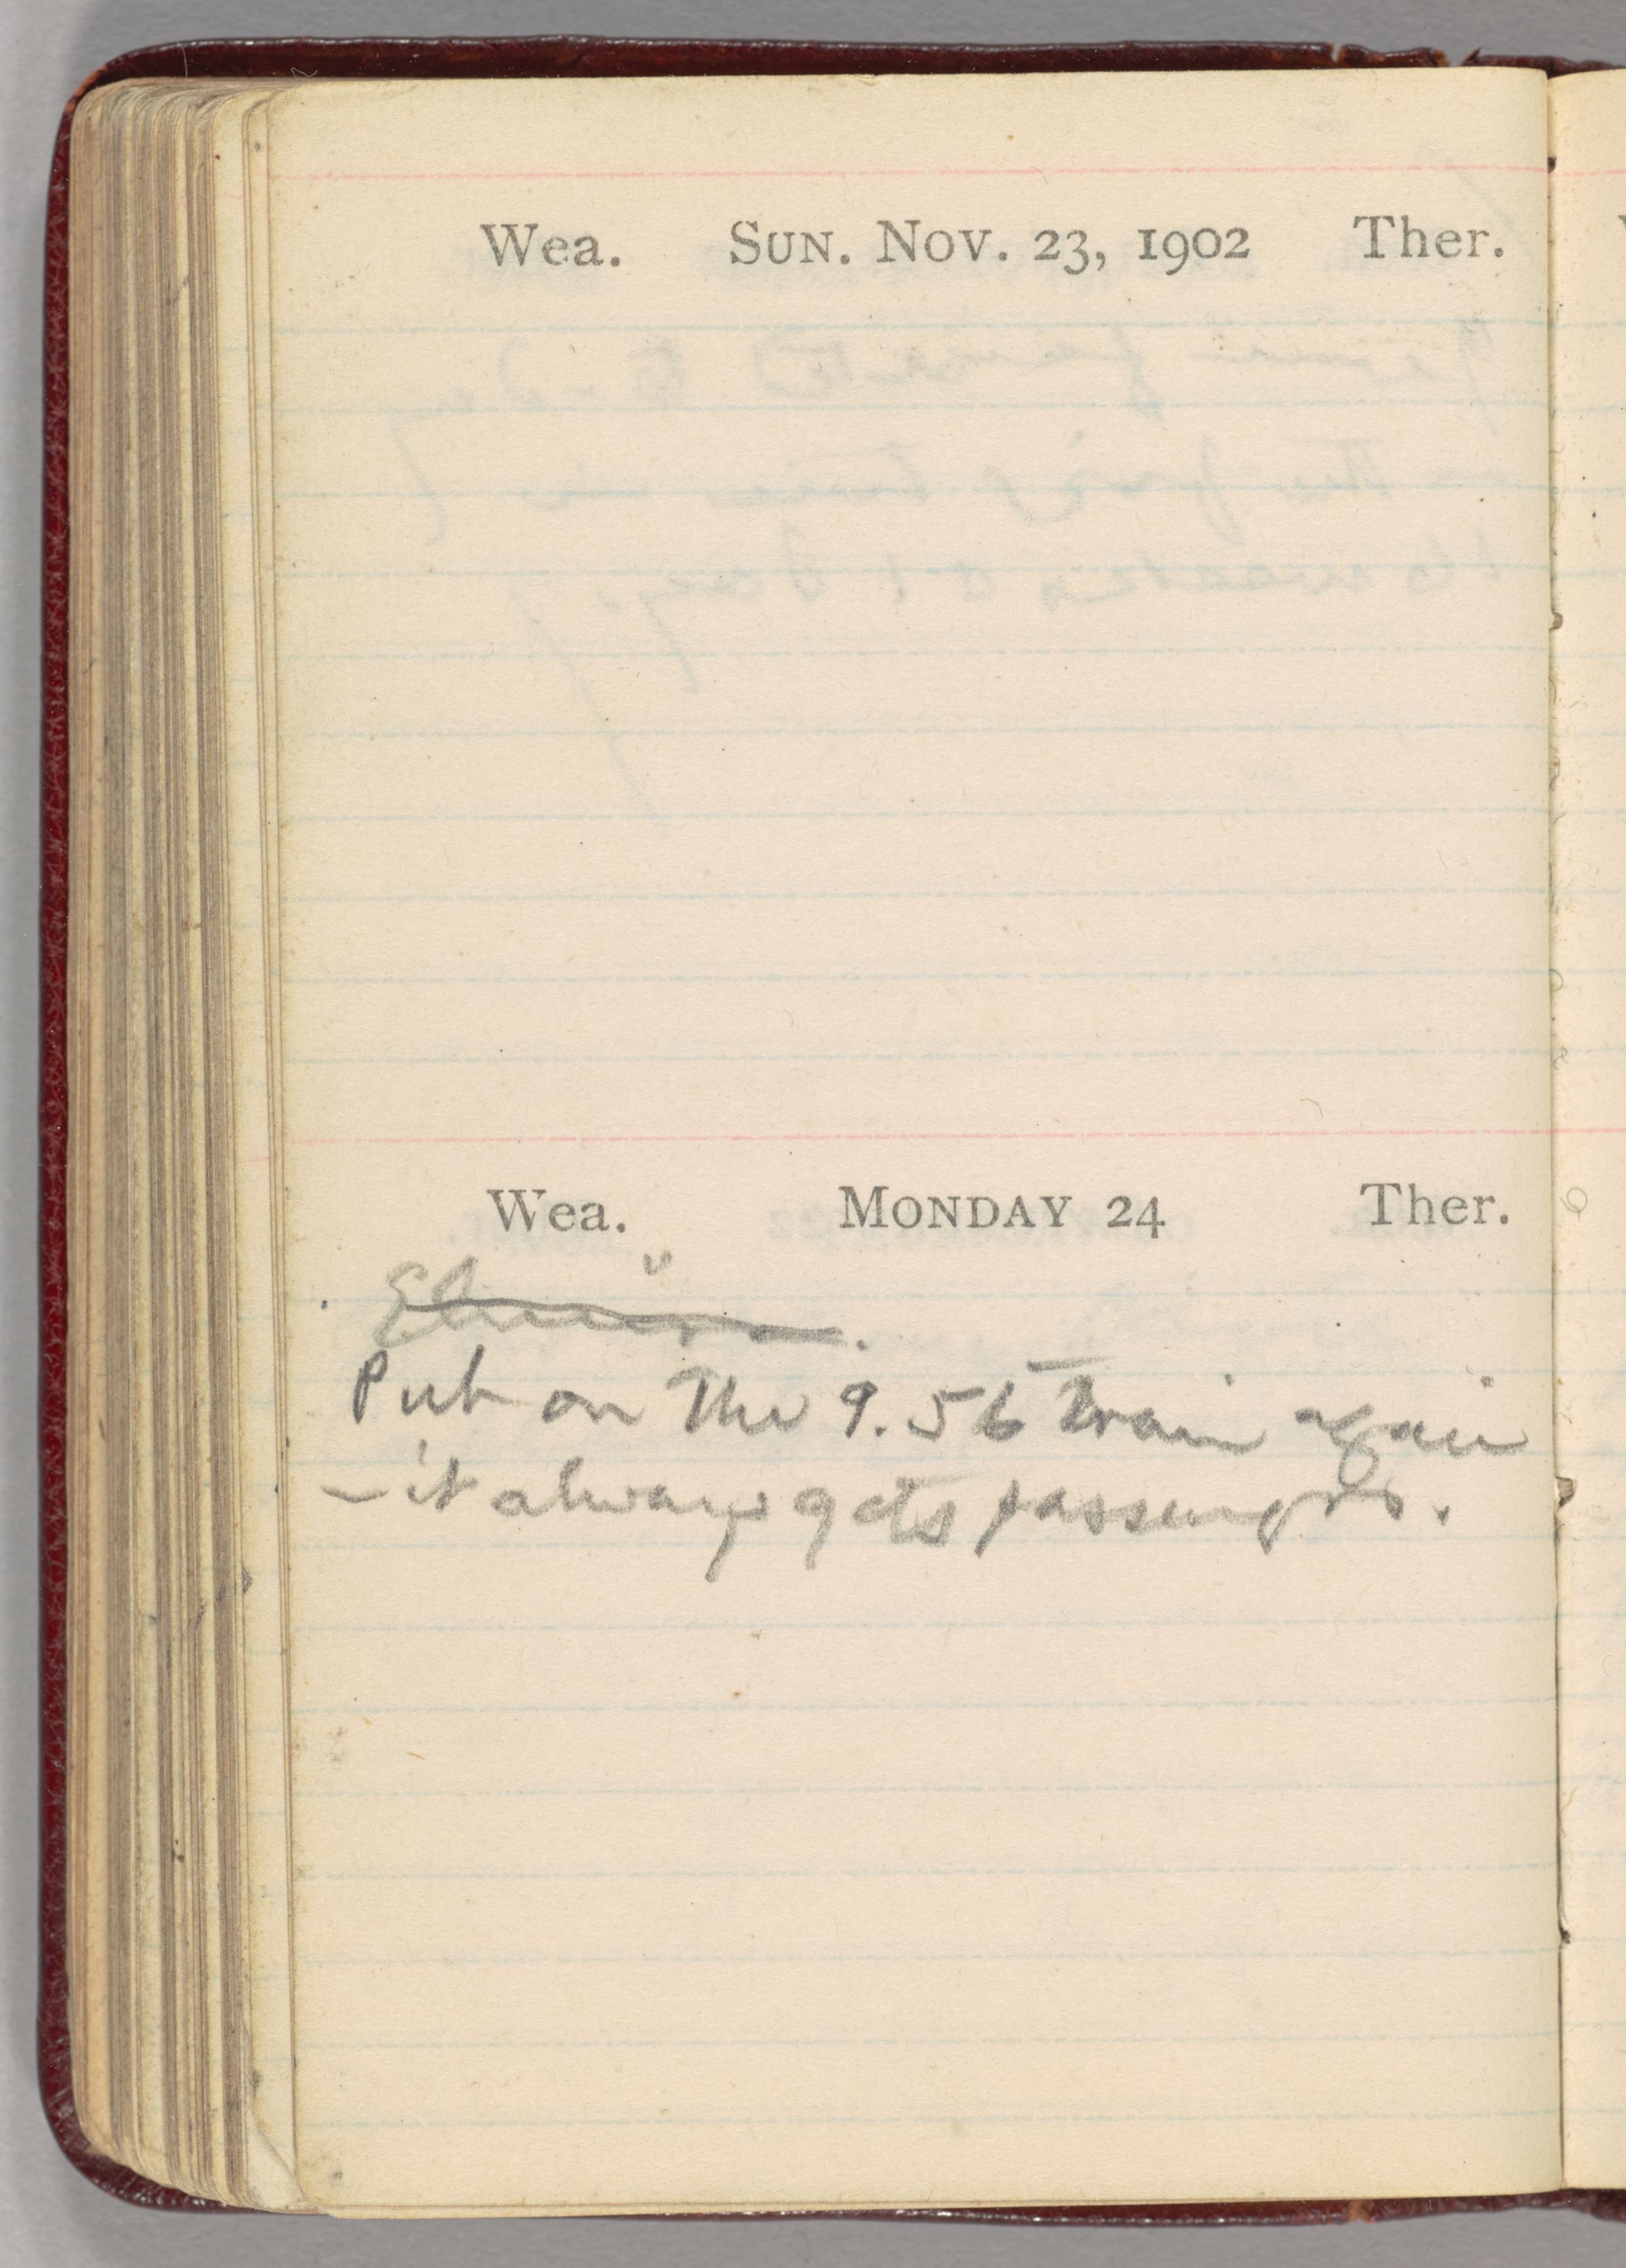 Wea. Sun. Nov. 23, 1902 Ther.
Wea. Monday 24 Ther.
Put on the 9.56 train again
– it always gets passengers.